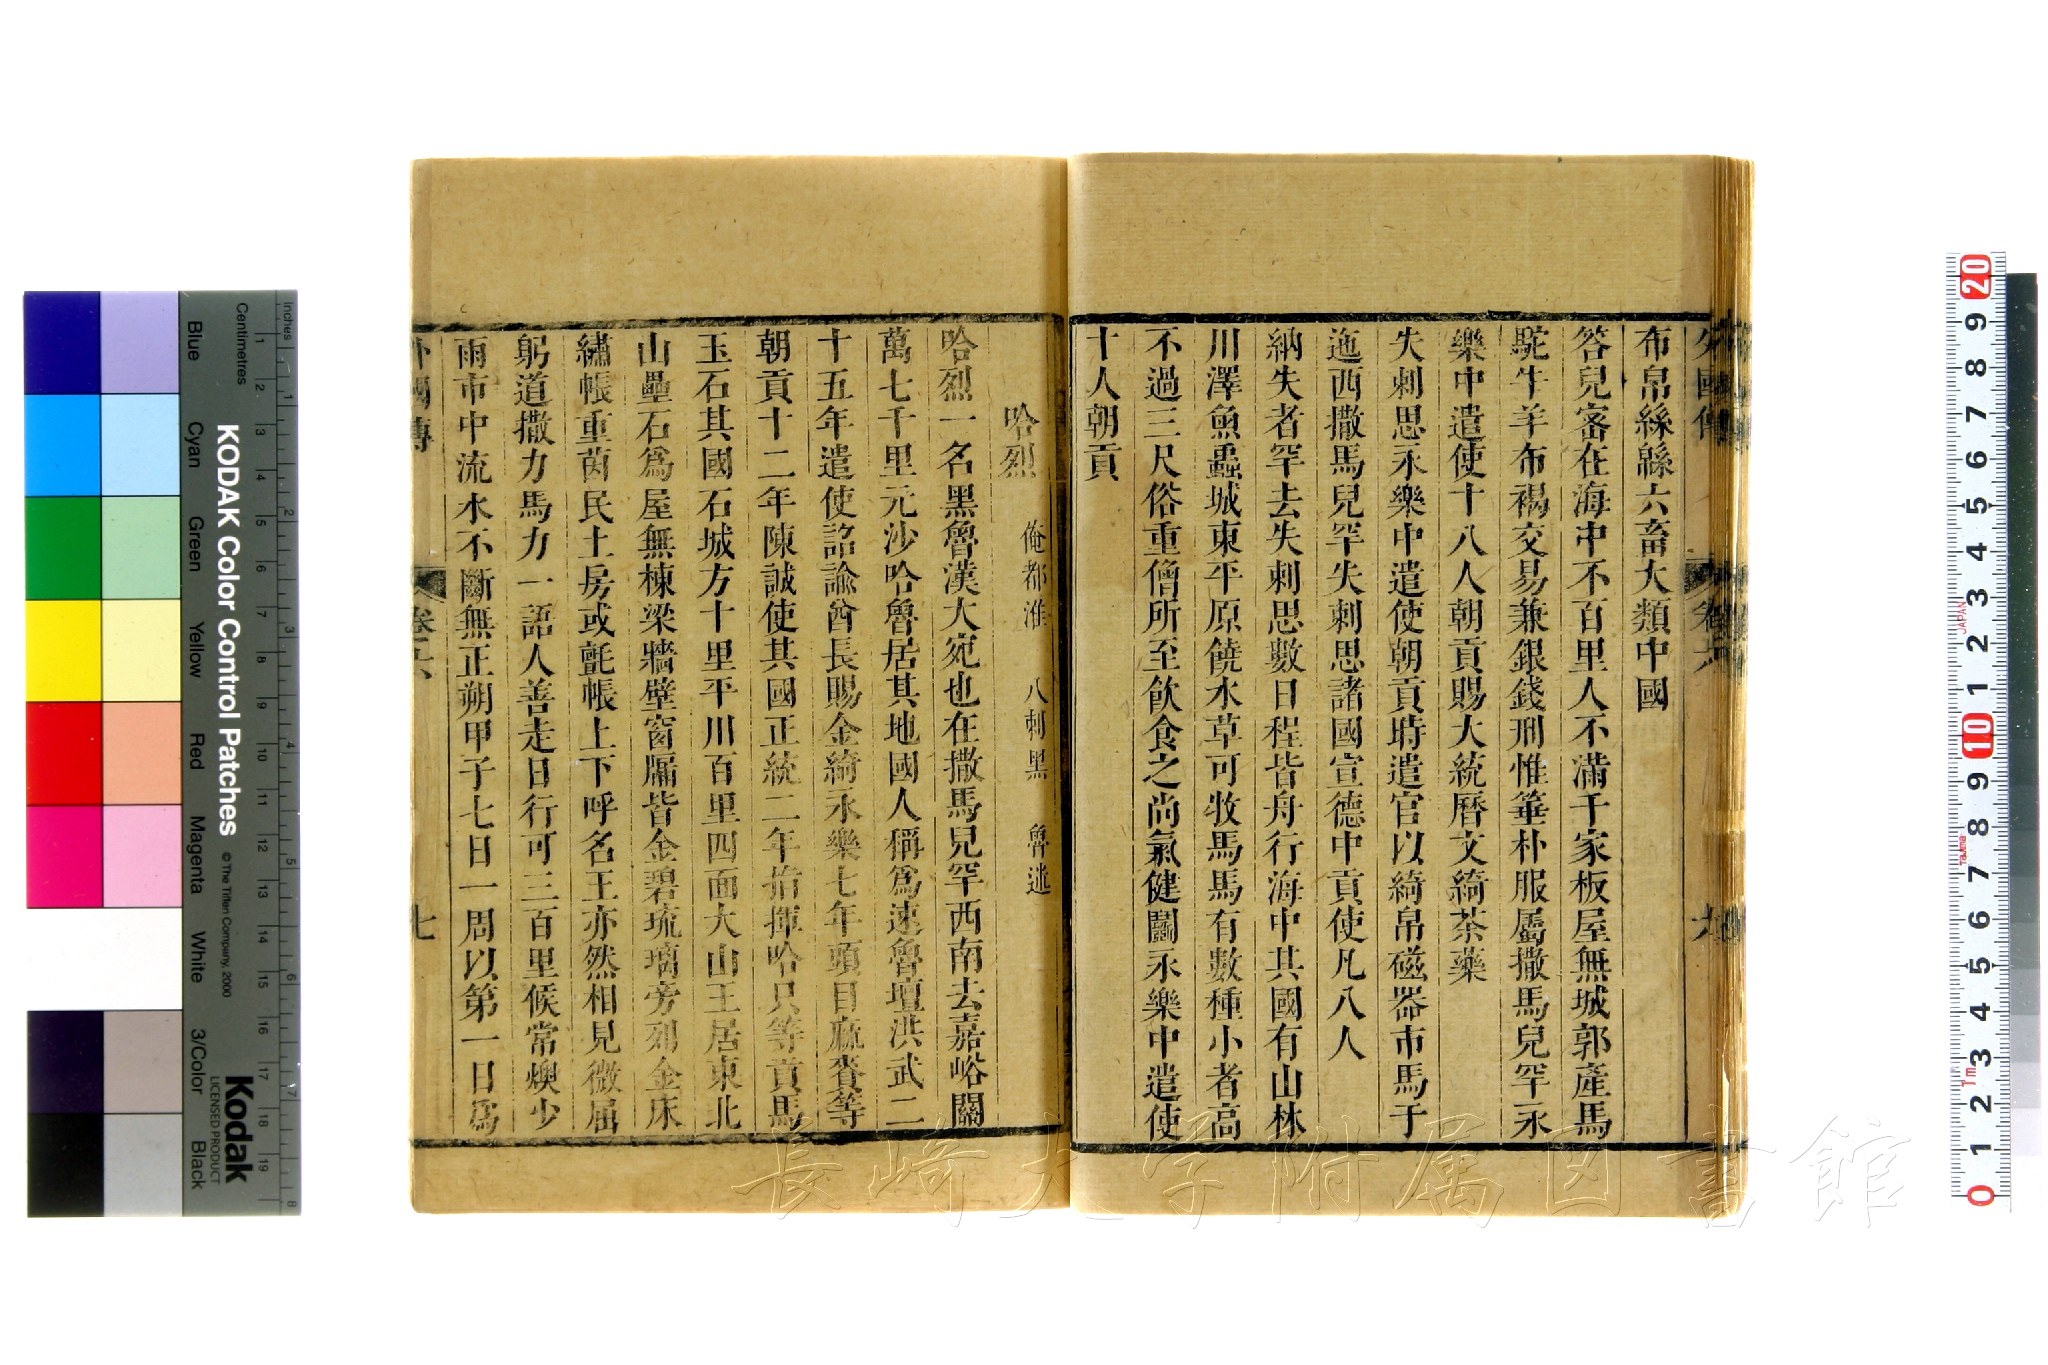 布帛絲緜六畜大類中國
答兒密在海中不百里人不滿千家板屋無城郭產馬
駝牛羊布褐交易兼銀錢刑惟箠朴服屬撒馬兒罕永
樂中遣使十八人朝貢賜大統曆文綺茶藥
失剌思永樂中遣使朝貢時遣官以綺帛磁器市馬于
迤西撒馬兒罕失剌思諸國宣德中貢使凡八人
納失者罕去失剌思數日程皆舟行海中其國有山林
川澤魚蟲城東平原饒水草可牧馬馬有數種小者高
不過三尺俗重僧所至飲食之尚氣健鬭永樂中遣使
十人朝貢
哈烈 俺都淮 八剌黑 魯迷
哈烈一名黑魯漢大宛也在撒馬兒罕西南去嘉峪關
萬七千里元沙哈魯居其地國人稱爲速魯壇洪武二
十五年遣使詔諭酋長賜金綺永樂七年頭目麻賚等
朝貢十二年陳誠使其國正統二年指揮哈只等貢馬
玉石其國石城方十里平川百里四面大山王居東北
山壘石爲屋無棟梁牆壁窗牖皆金碧琉璃旁列金床
繡帳重茵民土房或氈帳上下呼名王亦然相見微屈
躬道撒力馬力一語人善走日行可三百里候常燠少
雨市中流水不斷無正朔甲子七日一周以第一日爲
外國傳 卷之六 七
KODAK Color Control Patches
© The Tiffen Company, 2000
Kodak
LICENSED PRODUCT
Inches
Centimetres
Blue Cyan Green Yellow Red Magenta White 3/Color Black
長崎大学附属図書館
JAPAN
Tajima